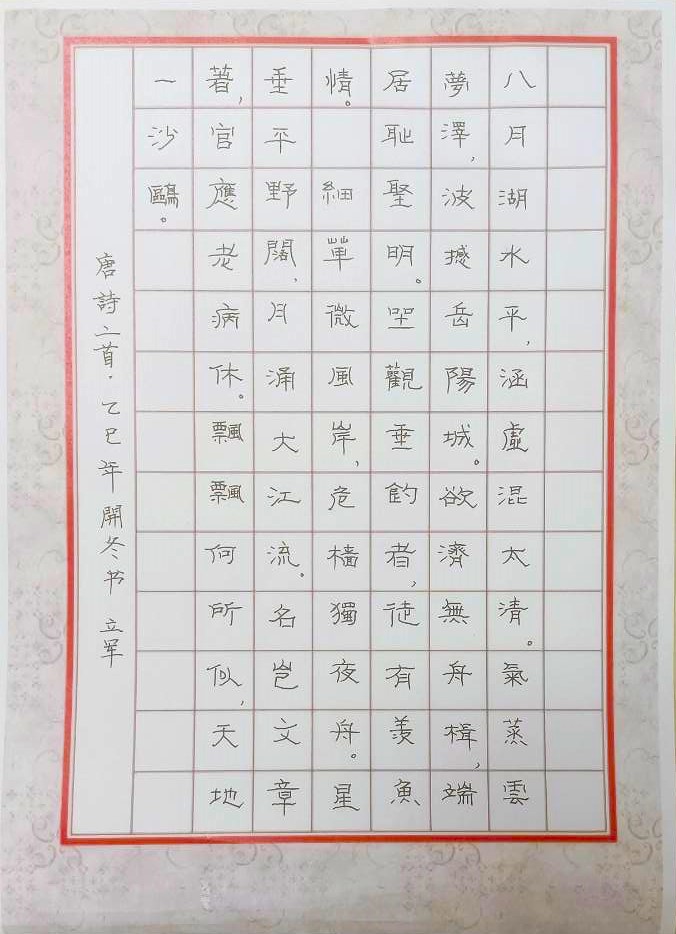 八月湖水平，涵虛混太清。氣蒸雲
夢澤，波撼岳陽城。欲濟無舟楫，端
居耻聖明。坐觀垂釣者，徒有羨魚
情。 細草微風岸，危檣獨夜舟。星
垂平野闊，月涌大江流。名豈文章
著，官應老病休。飄飄何所似，天地
一沙鷗。
唐詩二首·乙巳年開冬书 立军